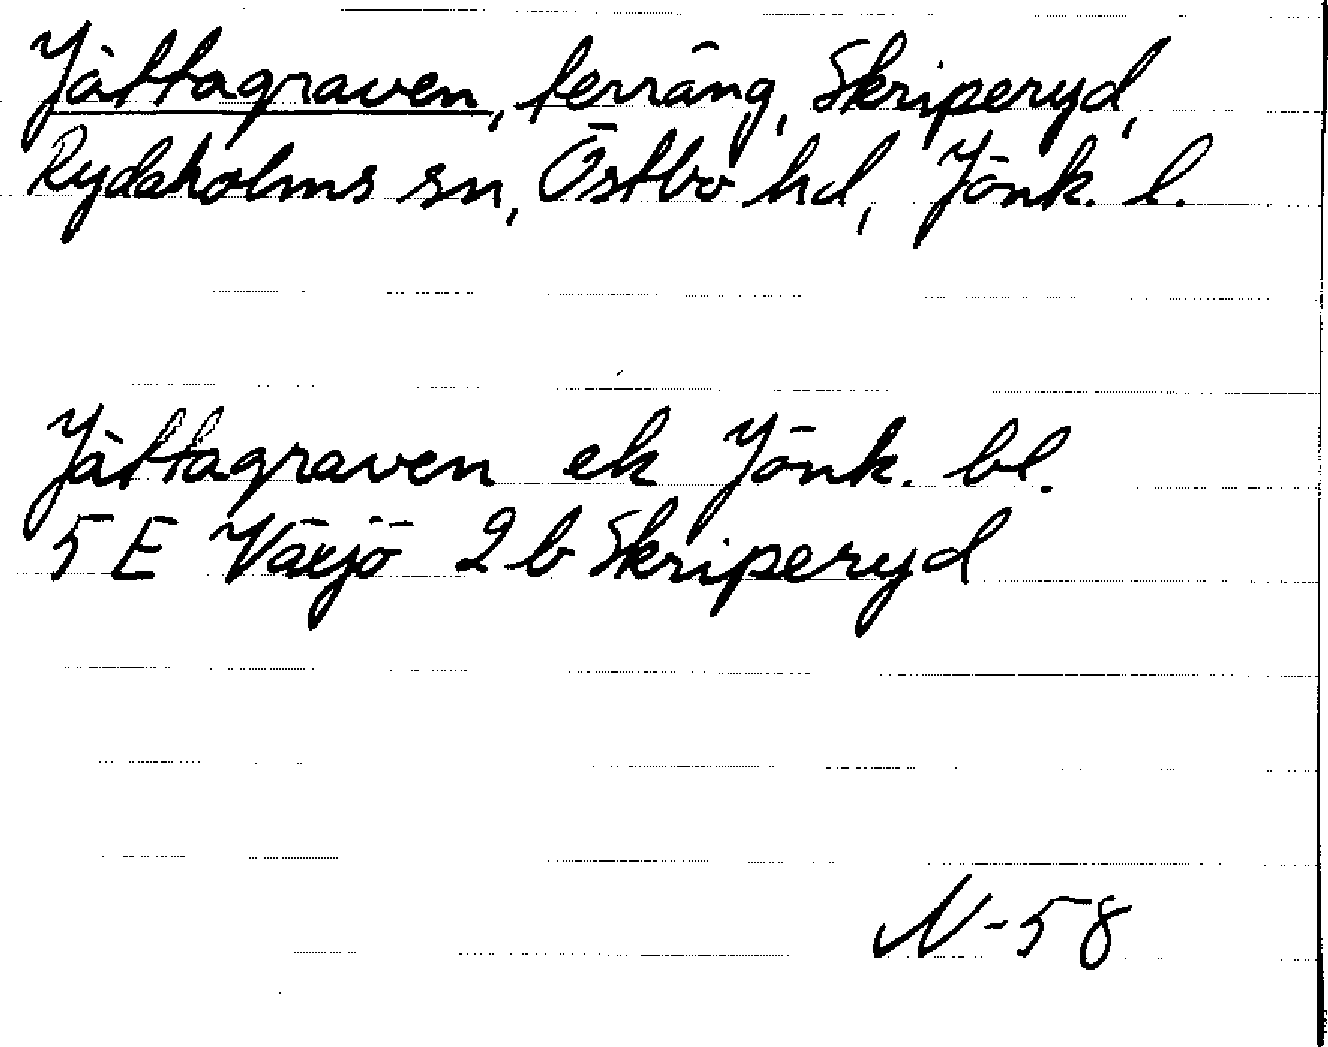 Jättagraven, terräng, Skriperyd,
Rydaholms sn, Östbo hd, Jönk. l.
Jättagraven ek Jönk. bl.
5 E Växjö 2 b Skriperyd
N-58